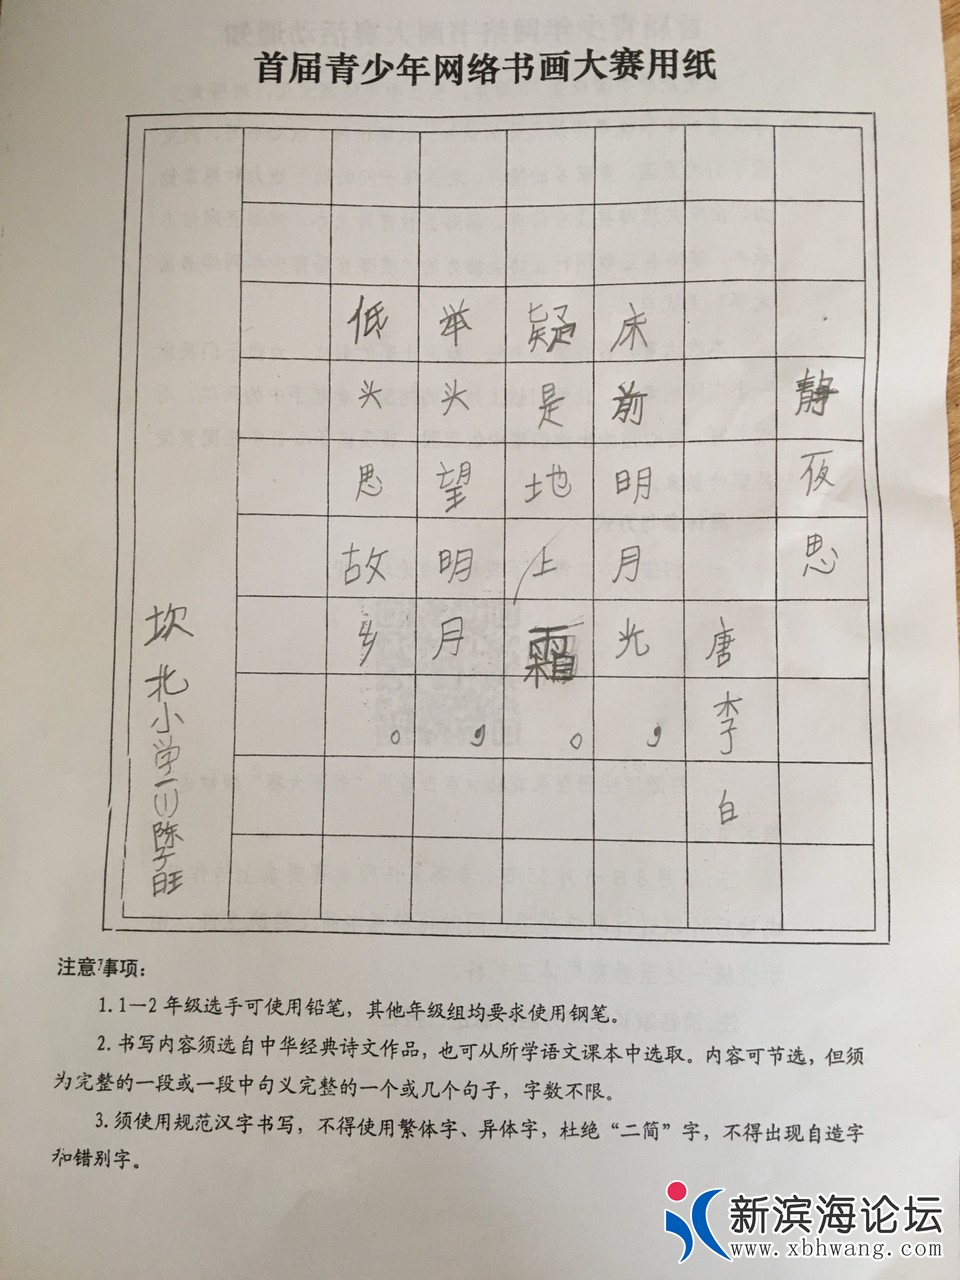 首届青少年网络书画大赛用纸
静夜思
唐李白
床前明月光，
疑是地上霜。
举头望明月，
低头思故乡。
坎北小学一（1）陈子旺
注意事项：
1. 1—2年级选手可使用铅笔，其他年级组均要求使用钢笔。
2. 书写内容须选自中华经典诗文作品，也可从所学语文课本中选取。内容可节选，但须
为完整的一段或一段中句义完整的一个或几个句子，字数不限。
3. 须使用规范汉字书写，不得使用繁体字、异体字，杜绝“二简”字，不得出现自造字
和错别字。
新滨海论坛
www.xbhwang.com